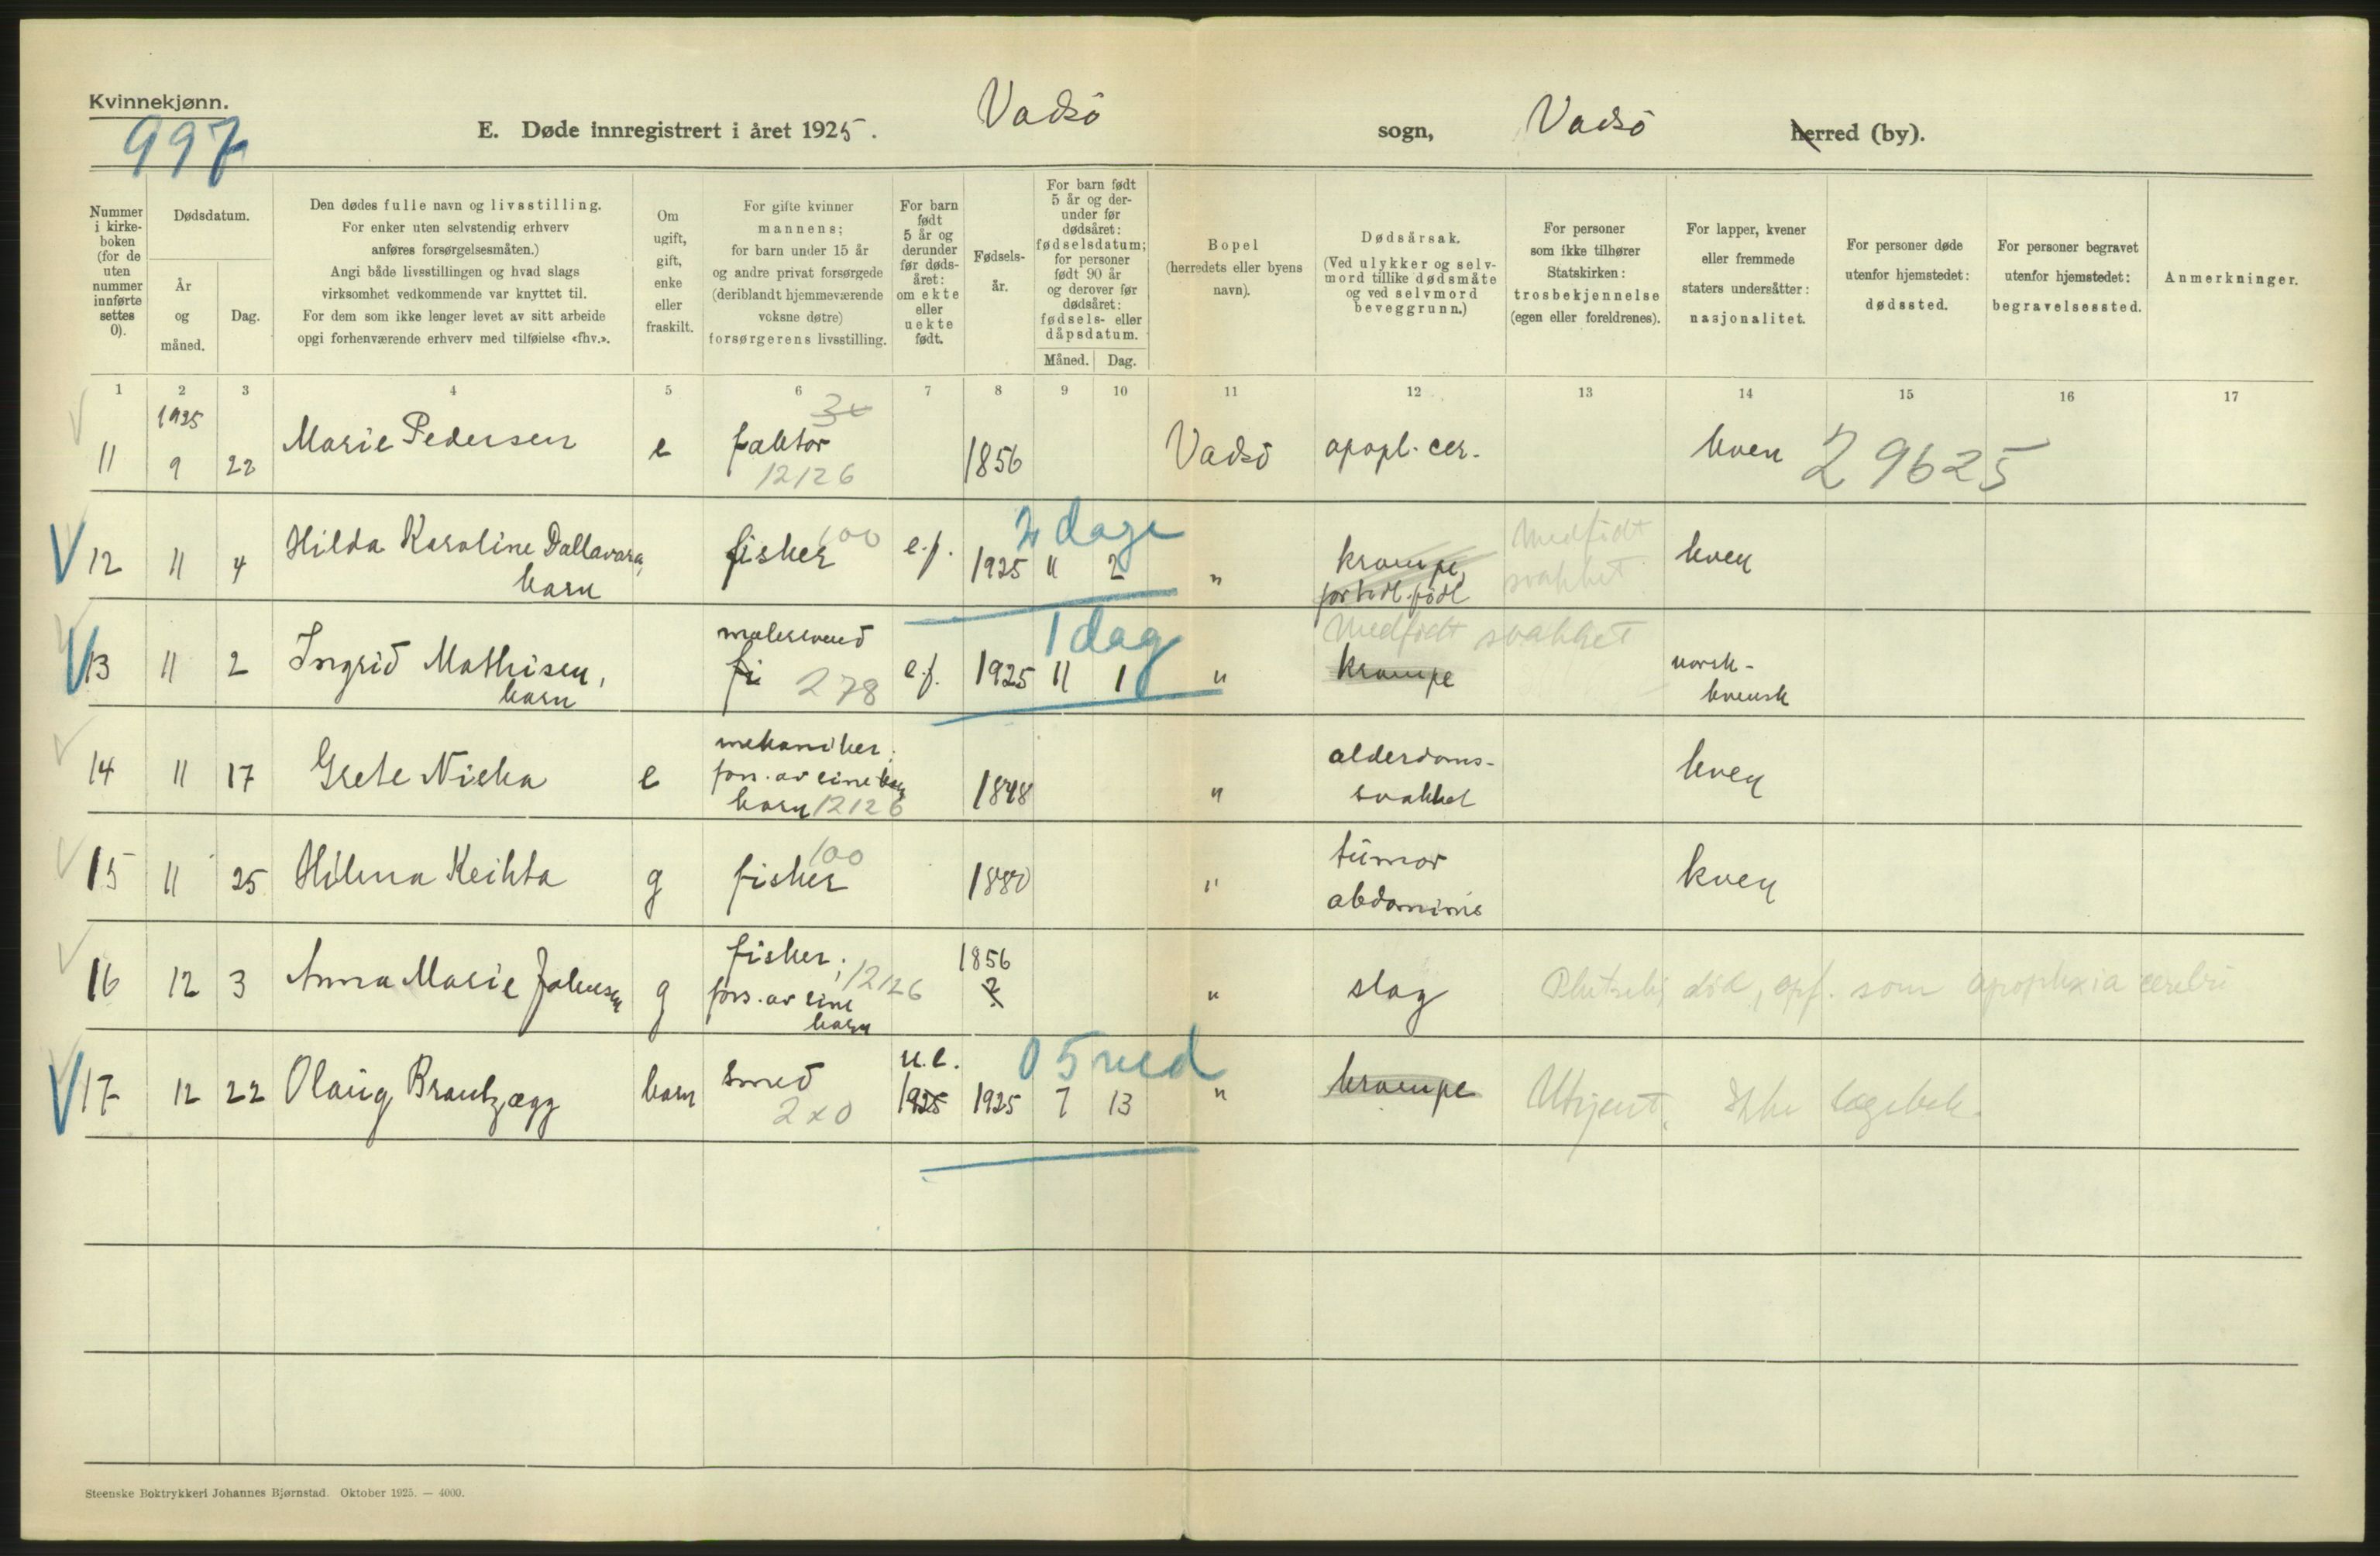 Kvinnekjønn.
997
E. Døde innregistrert i året 1925. Vadsö sogn, Vadsö herred (by).
Nummer i kirkeboken (for de uten nummer innførte settes 0).
Dødsdatum.
År og måned.
Dag.
Den dødes fulle navn og livsstilling.
For enker uten selvstendig erhverv
anføres forsørgelsesmåten.)
Angi både livsstillingen og hvad slags
virksomhet vedkommende var knyttet til.
For dem som ikke lenger levet av sitt arbeide
opgi forhenværende erhverv med tilføielse «fhv.».
Om ugift, gift, enke eller fraskilt.
For gifte kvinner
mannens;
for barn under 15 år
og andre privat forsørgede
(deriblandt hjemmeværende
voksne døtre)
forsørgerens livsstilling.
For barn født 5 år og derunder før dødsåret: om ekte eller uekte født.
Fødselsår.
For barn født 5 år og derunder før dødsåret: fødselsdatum; for personer født 90 år og derover før dødsåret: fødsels- eller dåpsdatum.
Måned. Dag.
Bopel
(herredets eller byens
navn).
Dødsårsak.
(Ved ulykker og selvmord tillike dødsmåte
og ved selvmord
beveggrunn.)
For personer
som ikke tilhører
Statskirken:
trosbekjennelse
(egen eller foreldrenes).
For lapper, kvener
eller fremmede
staters undersåtter:
nasjonalitet.
For personer døde
utenfor hjemstedet:
dødssted.
For personer begravet
utenfor hjemstedet:
begravelsessted.
Anmerkninger.
1 2 3 4 5 6 7 8 9 10 11 12 13 14 15 16 17
1925
11 9 22 Marie Pedersen e faktor 12126 1856 Vadsö apopl. cer. kven 29625
12 11 4 Hilda Karoline Dallavara, barn fisher 100 e.f. 1925 11 2 2 dage " krampe, for tidl. födt Medfödt svakhet kven
13 11 2 Ingrid Mathisen, barn malersvend fi 278 e.f. 1925 11 1 1 dag " krampe Medfödt svakhet norsk-kvensk
14 11 17 Grete Niska e mekaniker; fors. av sine barn 12126 1848 " alderdoms-svakhet kven
15 11 25 Hilma Keihta g fisker 100 1880 " tumor abdominis kven
16 12 3 Anna Marie Johnsen g fisker; fors. av sine barn 12126 1856 ? " slag Plutselig död, opf. som apoplexia cerebri
17 12 22 Olaug Brantzægg barn smed 2x0 u.e. 1925 1925 7 13 05 med " krampe Utvjent. Ikke lægebeh.
Steenske Boktrykkeri Johannes Bjørnstad. Oktober 1925. — 4000.